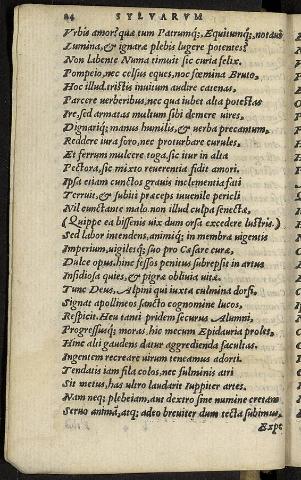 84 SYLVARVM
Vrbis amor? quæ tum Patrumq;, Equitumq;, notaui
Lumina, & ignaræ plebis lugere potentes?
Non labente Numa timuit sic curia felix.
Pompeio, nec celsus eques, nec fœmina Bruto,
Hoc illud. tristis inuitum audire catenas,
Parcere uerberibus, nec qua iubet alta potestas
Ire, sed armatas multum sibi demere uires,
Dignariq; manus humilis, & uerba precantum,
Reddere iura foro, nec proturbare curules,
Et ferrum mulcere toga, sic itur in alta
Pectora, sic mixto reuerentia fidit amori.
Ipsa etiam cunctos grauis inclementia fati
Terruit, & subiti præceps iuuenile pericli
Nil cunctante malo. non illud culpa senectæ,
(Quippe ea bissenis uix dum orsa excedere lustris.)
Sed labor intendens, animiq; in membra uigentis
Imperium, uigilesq; suo pro Cæsare curæ,
Dulce opus. hinc fessos penitus subrepsit in artus
Insidiosa quies, & pigra obliuia uitæ.
Tunc Deus, Alpini qui iuxta culmina dorsi,
Signat apollineos sancto cognomine lucos,
Respicit. Heu tanti pridem securus Alumni,
Progressusq; moras, hic mecum Epidauria proles,
Hinc alti gaudens datur aggredienda facultas.
Ingentem recreare uirum teneamus adorti.
Tendatis iam fila colos, nec fulminis atri
Sit metus, has ultro laudarit Iuppiter artes.
Nam neq; plebeiam, aut dextro sine numine cretam
Seruo animã, atq; adeo breuiter dum tecta subimus,
Expe